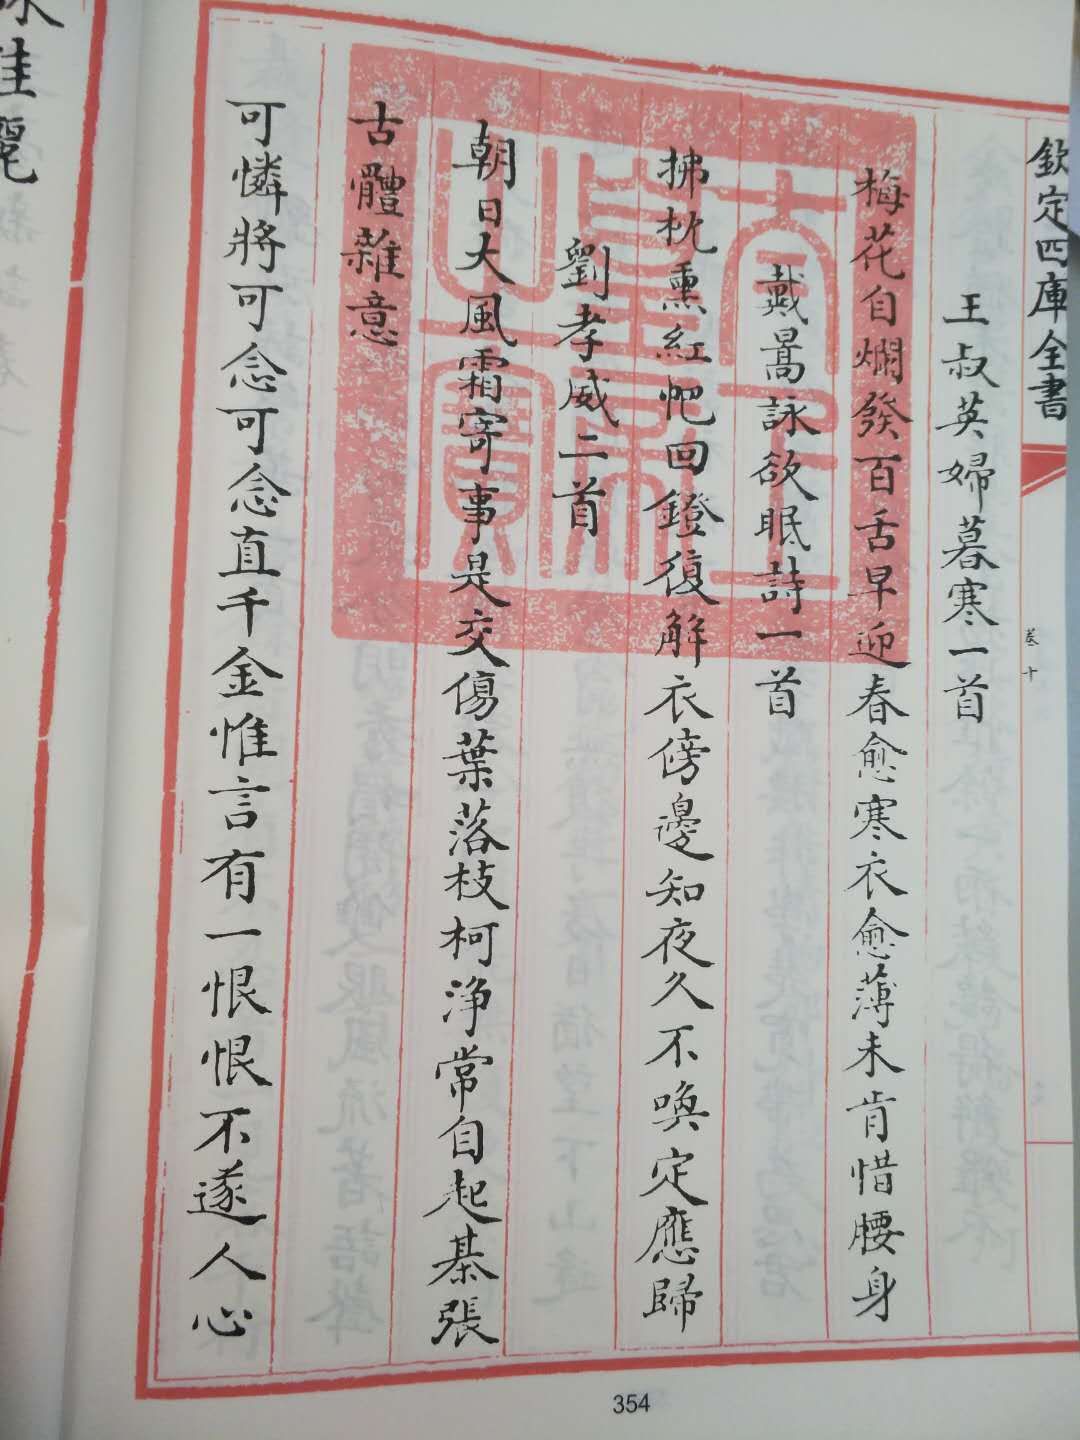 欽定四庫全書
卷十
王叔英婦暮寒一首
梅花自爛發百舌早迎春愈寒衣愈薄未肯惜腰身
戴暠詠欲眠詩一首
拂枕熏紅帊回鐙復解衣傍邊知夜久不喚定應歸
劉孝威二首
朝日大風霜寄事是交傷葉落枝柯浄常自起棊張
古體雜意
可憐將可念可念直千金惟言有一恨恨不遂人心
詠佳麗
354